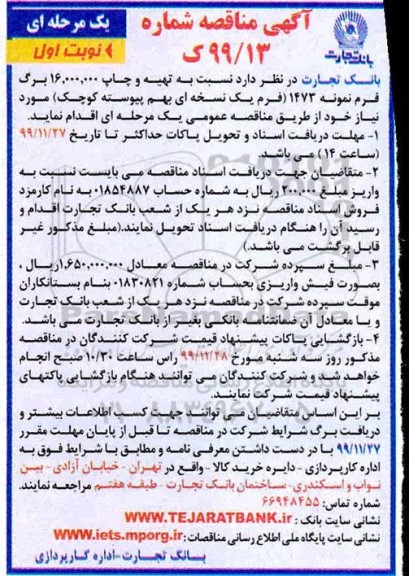 آگهی مناقصه شماره
۹۹/۱۳ ک
یک مرحله ای
نوبت اول
بانک تجارت
بانک تجارت در نظر دارد نسبت به تهیه و چاپ ۱۶,۰۰۰,۰۰۰ برگ
فرم نمونه ۱۴۷۳ (فرم یک نسخه ای بهم پیوسته کوچک) مورد
نیاز خود از طریق مناقصه عمومی یک مرحله ای اقدام نماید.
۱- مهلت دریافت اسناد و تحویل پاکات حداکثر تا تاریخ ۹۹/۱۱/۲۷
(ساعت ۱۴) می باشد
۲- متقاضیان جهت دریافت اسناد مناقصه می بایست نسبت به
واریز مبلغ ۲۰۰,۰۰۰ ریال به شماره حساب ۰۱۸۵۴۸۸۷ به نام کارمزد
فروش اسناد مناقصه نزد هر یک از شعب بانک تجارت اقدام و
رسید آن را هنگام دریافت اسناد تحویل نمایند.(مبلغ مذکور غیر
قابل برگشت می باشد.)
۳- مبلغ سپرده شرکت در مناقصه معادل ۱,۶۵۰,۰۰۰,۰۰۰ریال ,
بصورت فیش واریزی بحساب شماره ۰۱۸۳۰۸۲۱ بنام بستانکاران
موقت سپرده شرکت در مناقصه نزد هر یک از شعب بانک تجارت
و یا معادل آن ضمانتنامه بانکی بغیر از بانک تجارت می باشد.
۴- بازگشایی پاکات پیشنهاد قیمت شرکت کنندگان در مناقصه
مذکور روز سه شنبه مورخ ۹۹/۱۱/۲۸ راس ساعت ۱۰/۳۰ صبح انجام
خواهد شد و شرکت کنندگان می توانند هنگام بازگشایی پاکتهای
پیشنهاد قیمت شرکت نمایند.
بر این اساس متقاضیان می توانند جهت کسب اطلاعات بیشتر و
دریافت برگ شرایط شرکت در مناقصه تا قبل از پایان مهلت مقرر
۹۹/۱۱/۲۷ با در دست داشتن معرفی نامه و مطابق با شرایط فوق به
اداره کارپردازی - دایره خرید کالا - واقع در تهران - خیابان آزادی - بین
نواب و اسکندری- ساختمان بانک تجارت - طبقه هفتم مراجعه نمایند.
شماره تماس: ۶۶۹۴۸۴۵۵
نشانی سایت بانک : WWW.TEJARATBANK.ir
نشانی سایت پایگاه ملی اطلاع رسانی مناقصات: www.iets.mporg.ir
بانک تجارت-اداره کارپردازی